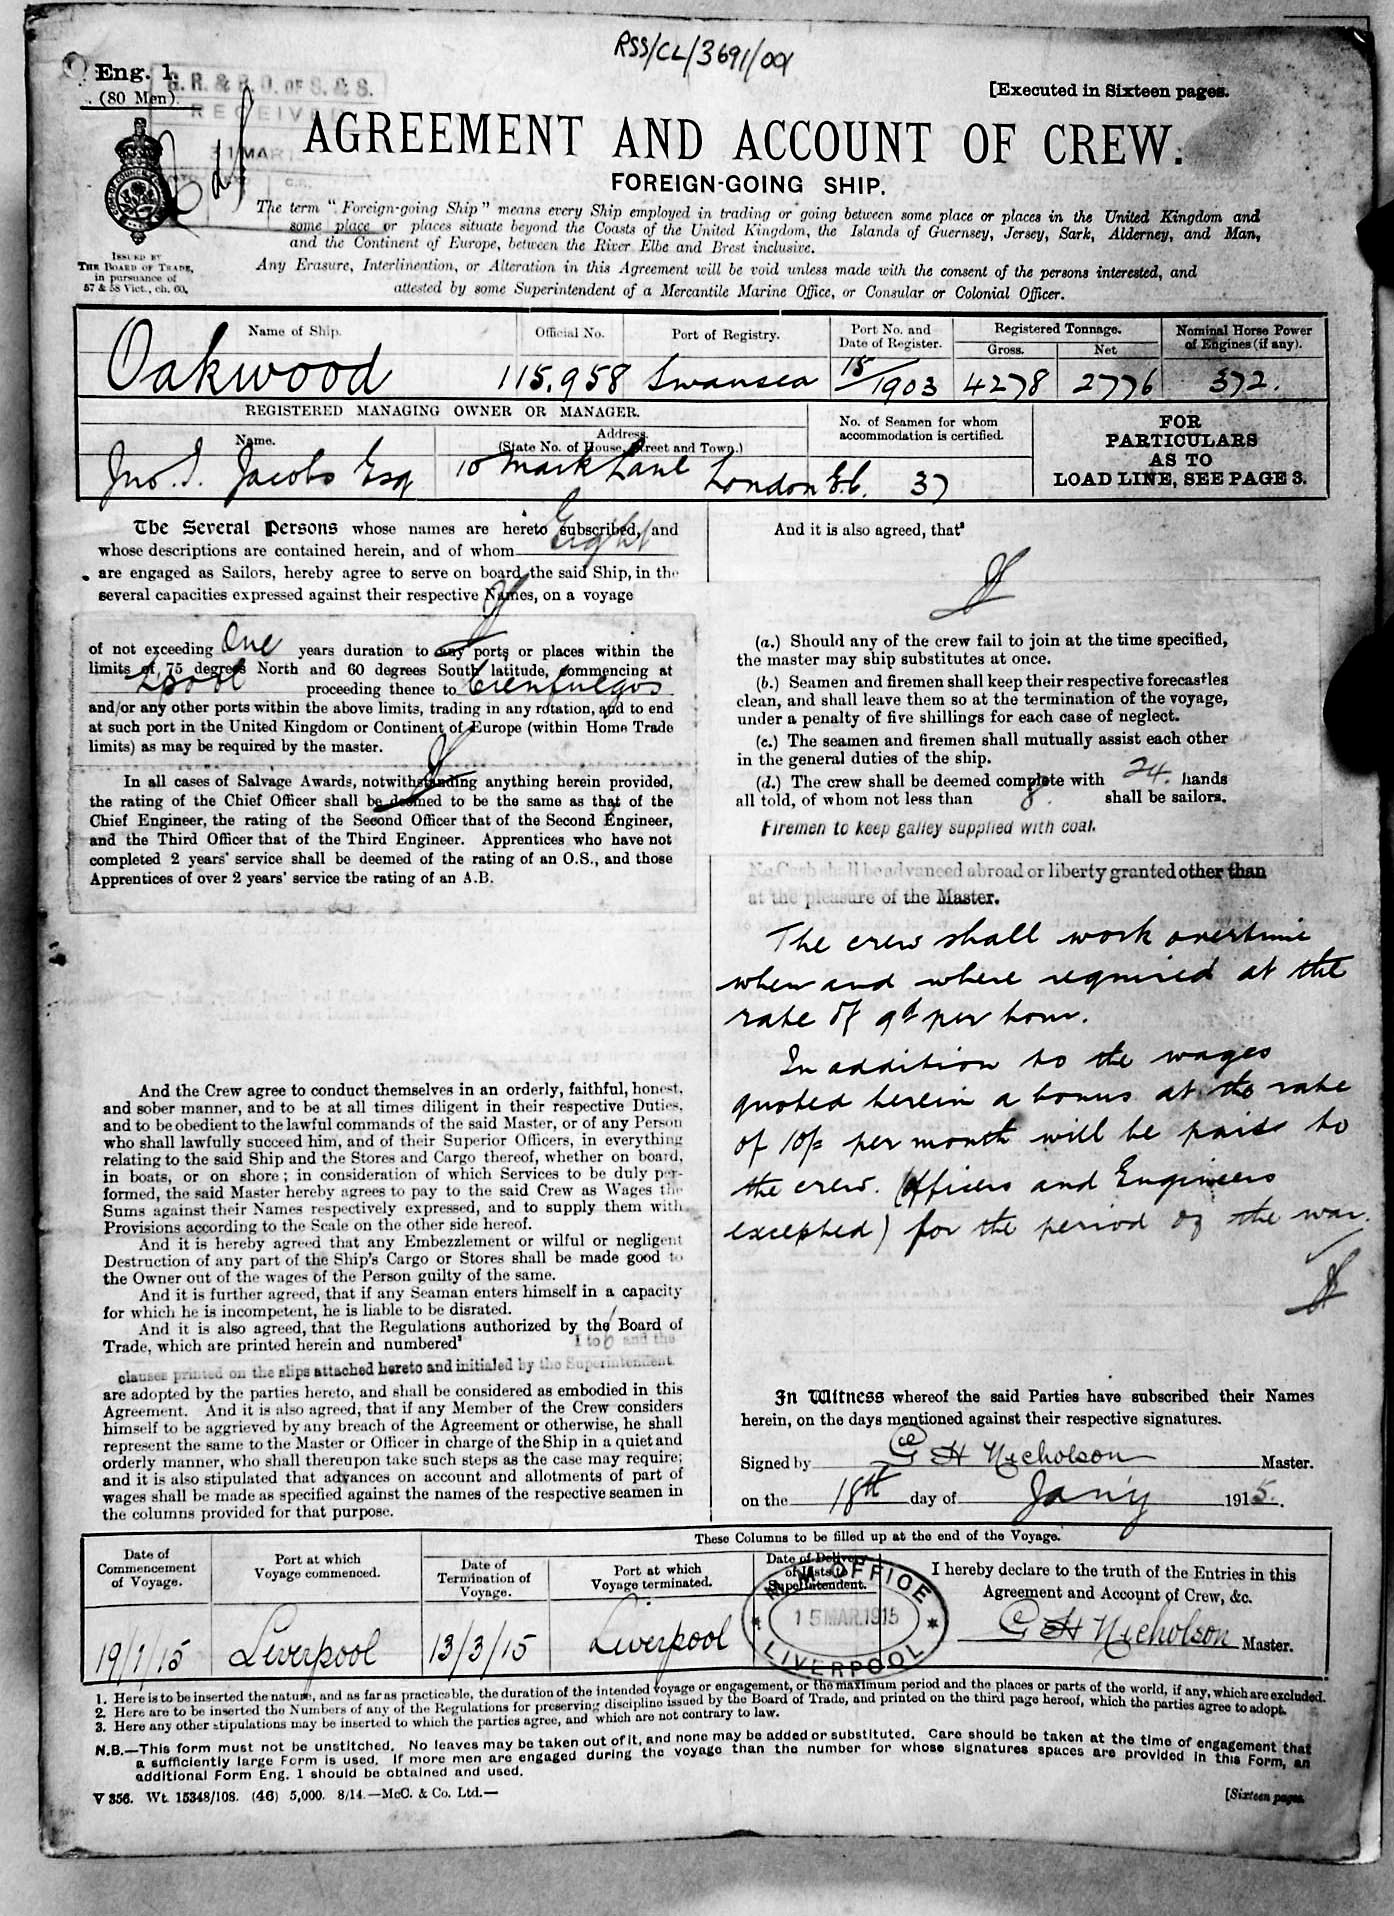 RSS/CL/3691/001
Eng. 1.
(80 Men).
G. R. & R. O. OF S. & S.
RECEIVED
[Executed in Sixteen pages.
AGREEMENT AND ACCOUNT OF CREW.
FOREIGN-GOING SHIP.
ISSUED BY
THE BOARD OF TRADE,
in pursuance of
57 & 58 Vict., ch. 60.
The term "Foreign-going Ship" means every Ship employed in trading or going between some place or places in the United Kingdom and
some place or places situate beyond the Coasts of the United Kingdom, the Islands of Guernsey, Jersey, Sark, Alderney, and Man,
and the Continent of Europe, between the River Elbe and Brest inclusive.
Any Erasure, Interlineation, or Alteration in this Agreement will be void unless made with the consent of the persons interested, and
attested by some Superintendent of a Mercantile Marine Office, or Consular or Colonial Officer.
Name of Ship. Official No. Port of Registry. Port No. and Date of Register. Registered Tonnage. Gross. Net Nominal Horse Power of Engines (if any).
Oakwood 115.958 Swansea 15/1903 4278 2776 372.
REGISTERED MANAGING OWNER OR MANAGER.
Name. Address. (State No. of House, Street and Town.) No. of Seamen for whom accommodation is certified.
Jno. I. Jacobs Esq 10 Mark Lane London E.C. 37
FOR
PARTICULARS
AS TO
LOAD LINE, SEE PAGE 3.
The Several Persons whose names are hereto subscribed, and
whose descriptions are contained herein, and of whom Eight
are engaged as Sailors, hereby agree to serve on board the said Ship, in the
several capacities expressed against their respective Names, on a voyage
of not exceeding One years duration to any ports or places within the
limits of 75 degrees North and 60 degrees South latitude, commencing at
L'pool proceeding thence to Cienfuegos
and/or any other ports within the above limits, trading in any rotation, and to end
at such port in the United Kingdom or Continent of Europe (within Home Trade
limits) as may be required by the master.
In all cases of Salvage Awards, notwithstanding anything herein provided,
the rating of the Chief Officer shall be deemed to be the same as that of the
Chief Engineer, the rating of the Second Officer that of the Second Engineer,
and the Third Officer that of the Third Engineer. Apprentices who have not
completed 2 years' service shall be deemed of the rating of an O.S., and those
Apprentices of over 2 years' service the rating of an A.B.
And the Crew agree to conduct themselves in an orderly, faithful, honest,
and sober manner, and to be at all times diligent in their respective Duties,
and to be obedient to the lawful commands of the said Master, or of any Person
who shall lawfully succeed him, and of their Superior Officers, in everything
relating to the said Ship and the Stores and Cargo thereof, whether on board,
in boats, or on shore; in consideration of which Services to be duly per-
formed, the said Master hereby agrees to pay to the said Crew as Wages the
Sums against their Names respectively expressed, and to supply them with
Provisions according to the Scale on the other side hereof.
And it is hereby agreed that any Embezzlement or wilful or negligent
Destruction of any part of the Ship's Cargo or Stores shall be made good to
the Owner out of the wages of the Person guilty of the same.
And it is further agreed, that if any Seaman enters himself in a capacity
for which he is incompetent, he is liable to be disrated.
And it is also agreed, that the Regulations authorized by the Board of
Trade, which are printed herein and numbered² 1 to 6 and the
clauses printed on the slips attached hereto and initialed by the Superintendent.
are adopted by the parties hereto, and shall be considered as embodied in this
Agreement. And it is also agreed, that if any Member of the Crew considers
himself to be aggrieved by any breach of the Agreement or otherwise, he shall
represent the same to the Master or Officer in charge of the Ship in a quiet and
orderly manner, who shall thereupon take such steps as the case may require;
and it is also stipulated that advances on account and allotments of part of
wages shall be made as specified against the names of the respective seamen in
the columns provided for that purpose.
And it is also agreed, that³
(a.) Should any of the crew fail to join at the time specified,
the master may ship substitutes at once.
(b.) Seamen and firemen shall keep their respective forecastles
clean, and shall leave them so at the termination of the voyage,
under a penalty of five shillings for each case of neglect.
(c.) The seamen and firemen shall mutually assist each other
in the general duties of the ship.
(d.) The crew shall be deemed complete with 24. hands
all told, of whom not less than 8. shall be sailors.
Firemen to keep galley supplied with coal.
No Cash shall be advanced abroad or liberty granted other than
at the pleasure of the Master.
The crew shall work overtime
when and where required at the
rate of 9d per hour.
In addition to the wages
quoted herein a bonus at the rate
of 10/- per month will be paid to
the crew. (Officers and Engineers
excepted) for the period of the war.
In Witness whereof the said Parties have subscribed their Names
herein, on the days mentioned against their respective signatures.
Signed by G H Nicholson Master.
on the 18th day of Jany 1915.
These Columns to be filled up at the end of the Voyage.
Date of Commencement of Voyage. Port at which Voyage commenced. Date of Termination of Voyage. Port at which Voyage terminated. Date of Delivery of Lists to Superintendent.
I hereby declare to the truth of the Entries in this
Agreement and Account of Crew, &c.
19/1/15 Liverpool 13/3/15 Liverpool
M. M. OFFICE
15 MAR. 1915
LIVERPOOL
G H Nicholson Master.
1. Here is to be inserted the nature, and as far as practicable, the duration of the intended voyage or engagement, or the maximum period and the places or parts of the world, if any, which are excluded.
2. Here are to be inserted the Numbers of any of the Regulations for preserving discipline issued by the Board of Trade, and printed on the third page hereof, which the parties agree to adopt.
3. Here any other stipulations may be inserted to which the parties agree, and which are not contrary to law.
N.B.—This form must not be unstitched. No leaves may be taken out of it, and none may be added or substituted. Care should be taken at the time of engagement that
a sufficiently large Form is used. If more men are engaged during the voyage than the number for whose signatures spaces are provided in this Form, an
additional Form Eng. 1 should be obtained and used.
V 356. Wt. 15348/108. (46) 5,000. 8/14.—McC. & Co. Ltd.—
[Sixteen pages.